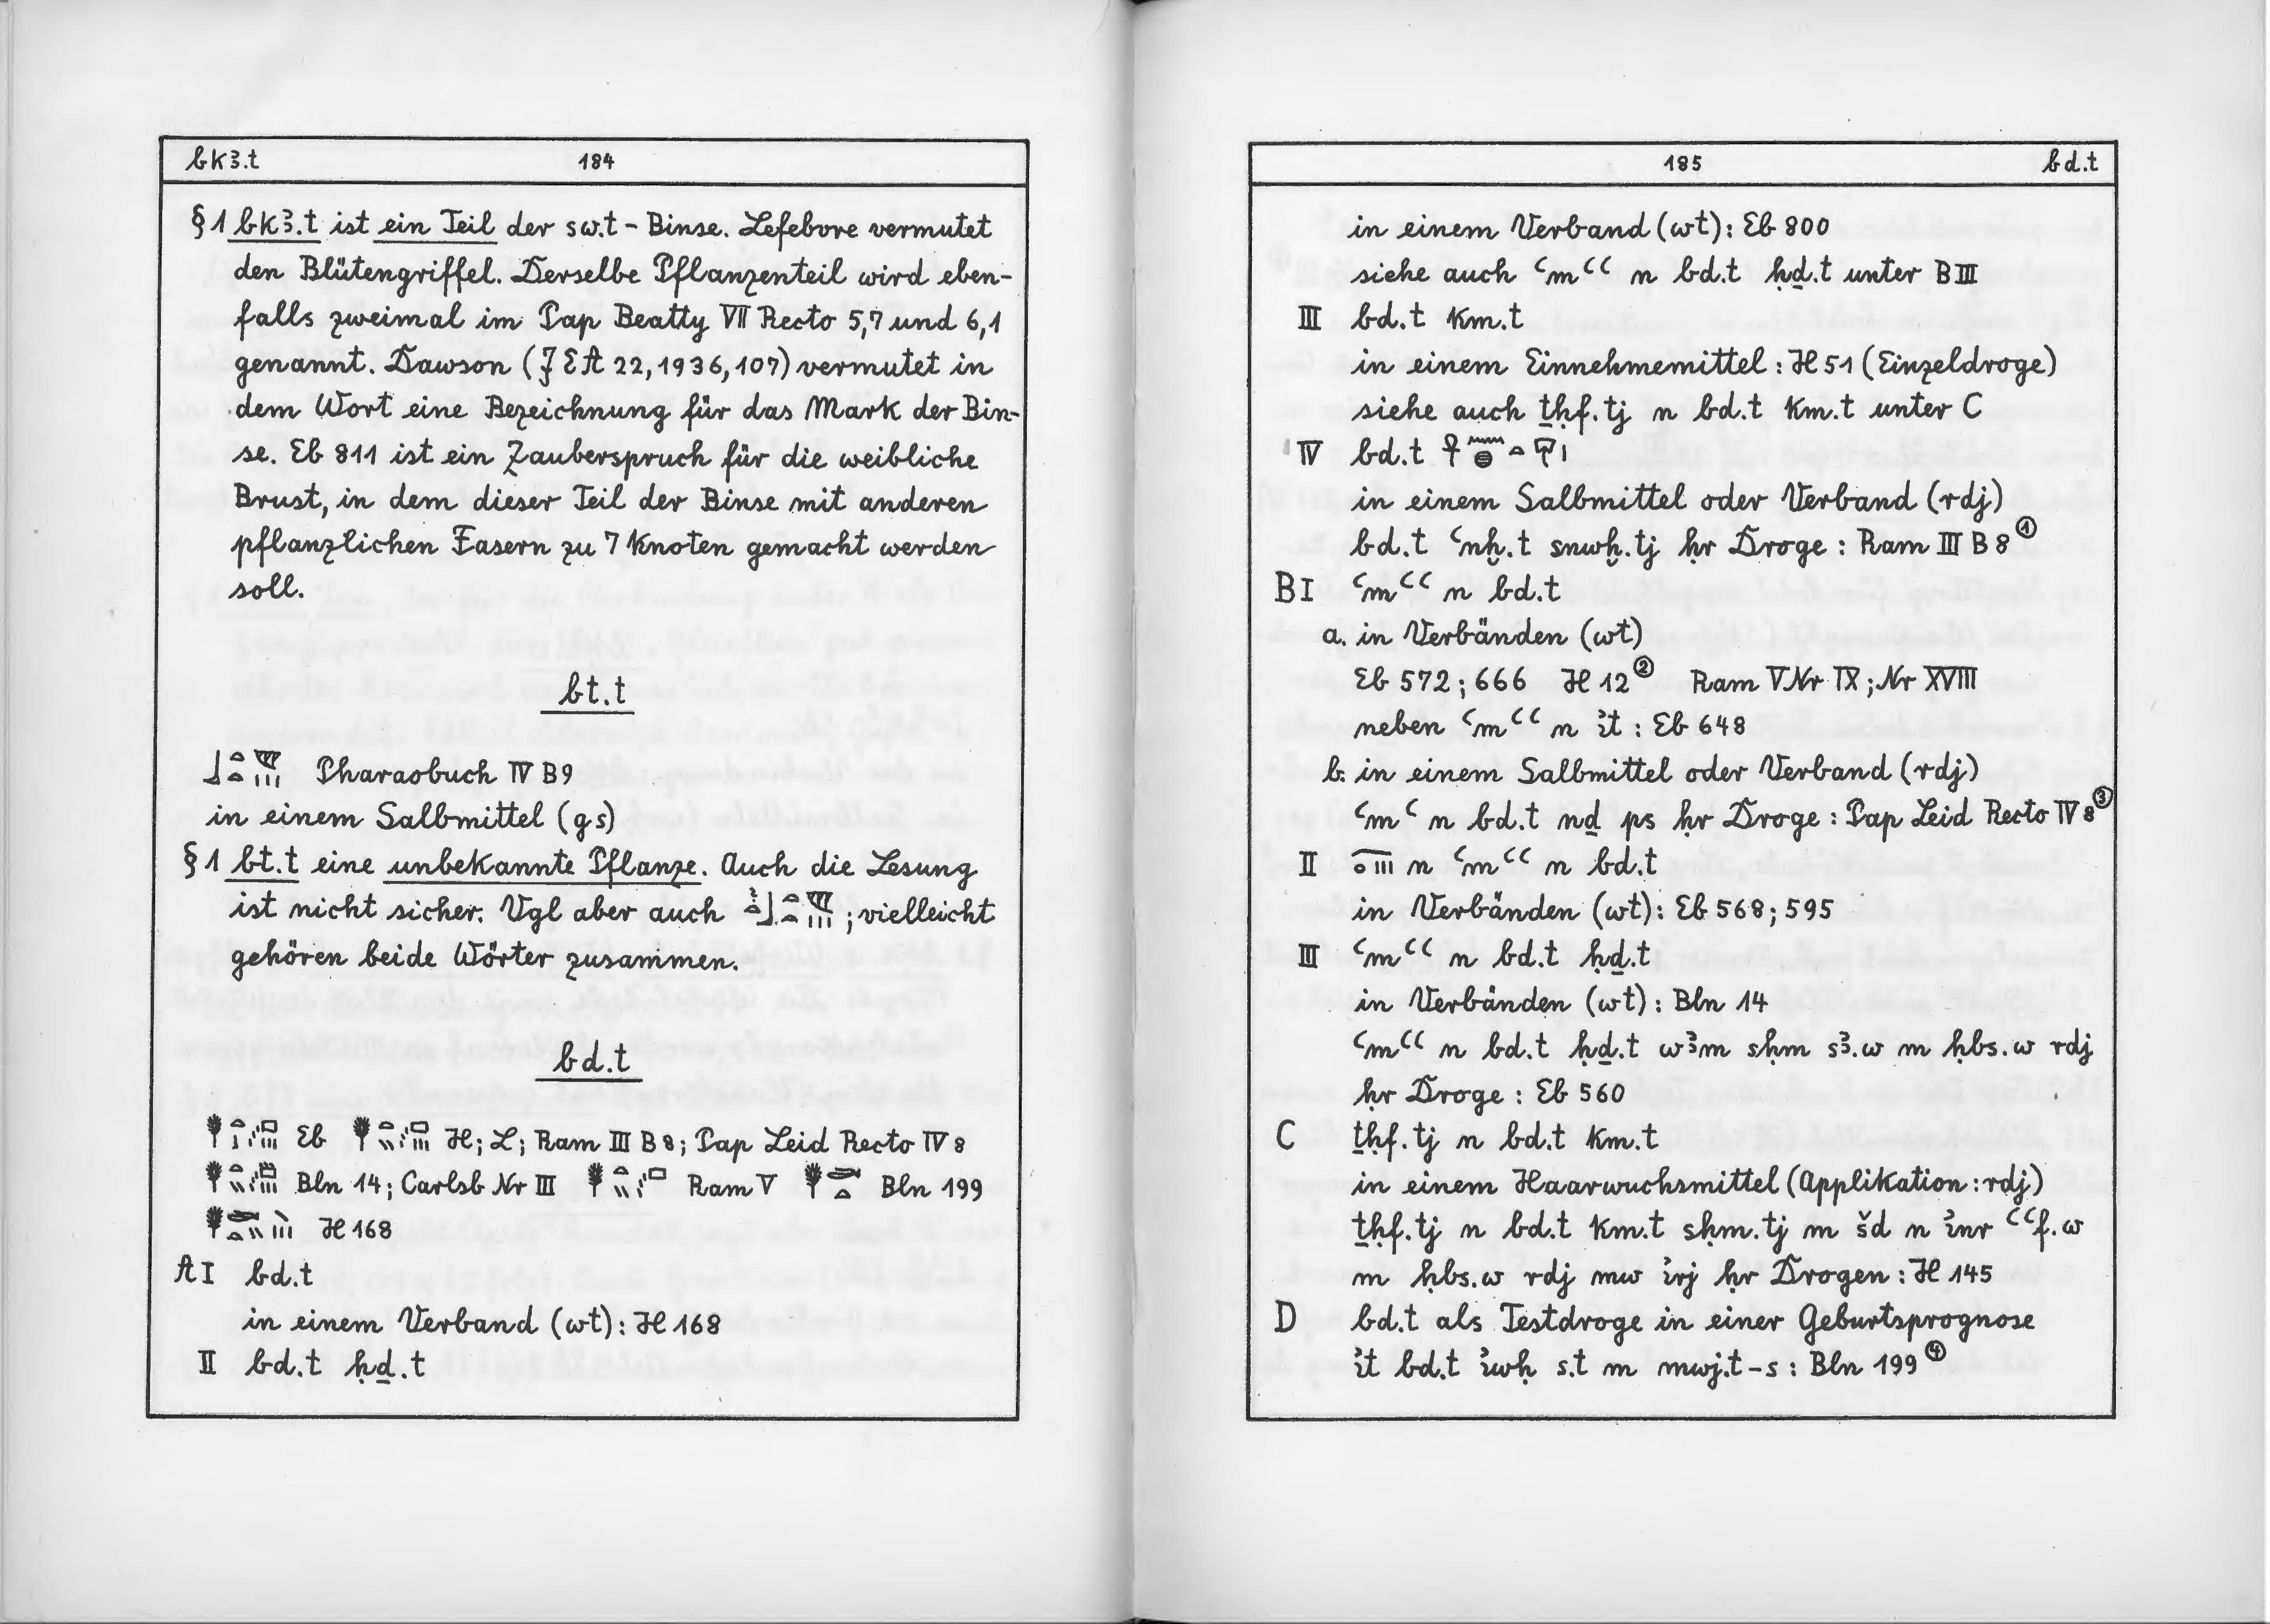 bkꜣ.t 184
§ 1 bkꜣ.t ist ein Teil der sw.t - Binse. Lefebvre vermutet
den Blütengriffel. Derselbe Pflanzenteil wird eben-
falls zweimal im Pap Beatty VII Recto 5,7 und 6,1
genannt. Dawson (JEA 22, 1936, 107) vermutet in
dem Wort eine Bezeichnung für das Mark der Bin-
se. Eb 811 ist ein Zauberspruch für die weibliche
Brust, in dem dieser Teil der Binse mit anderen
pflanzlichen Fasern zu 7 Knoten gemacht werden
soll.
bt.t
Pharaobuch IV B9
in einem Salbmittel (gs)
§ 1 bt.t eine unbekannte Pflanze. Auch die Lesung
ist nicht sicher. Vgl aber auch ; vielleicht
gehören beide Wörter zusammen.
bd.t
Eb H; L; Ram III B 8; Pap Leid Recto IV 8
Bln 14; Carlsb Nr III Ram V Bln 199
H 168
A I bd.t
in einem Verband (wt): H 168
II bd.t ḥḏ.t
185 bd.t
in einem Verband (wt): Eb 800
siehe auch ꜥmꜥꜥ n bd.t ḥḏ.t unter B III
III bd.t km.t
in einem Einnehmemittel: H 51 (Einzeldroge)
siehe auch ṯḥf.tj n bd.t km.t unter C
IV bd.t
in einem Salbmittel oder Verband (rdj)
bd.t ꜥnḫ.t snwḫ.tj ḥr Droge: Ram III B 8 ①
B I ꜥmꜥꜥ n bd.t
a. in Verbänden (wt)
Eb 572; 666 H 12 ② Ram V Nr IX; Nr XVIII
neben ꜥmꜥꜥ n ı͗t: Eb 648
b. in einem Salbmittel oder Verband (rdj)
ꜥmꜥ n bd.t nḏ ps ḥr Droge: Pap Leid Recto IV 8 ③
II n ꜥmꜥꜥ n bd.t
in Verbänden (wt): Eb 568; 595
III ꜥmꜥꜥ n bd.t ḥḏ.t
in Verbänden (wt): Bln 14
ꜥmꜥꜥ n bd.t ḥḏ.t wꜣm sḥm sꜣ.w m ḥbs.w rdj
ḥr Droge: Eb 560
C ṯḥf.tj n bd.t km.t
in einem Haarwuchsmittel (Applikation: rdj)
ṯḥf.tj n bd.t km.t sḥm.tj m šd n ı͗nr ꜥꜥf.w
m ḥbs.w rdj mw ı͗rj ḥr Drogen: H 145
D bd.t als Testdroge in einer Geburtsprognose
ı͗t bd.t ı͗wḥ s.t m mwj.t-s: Bln 199 ④